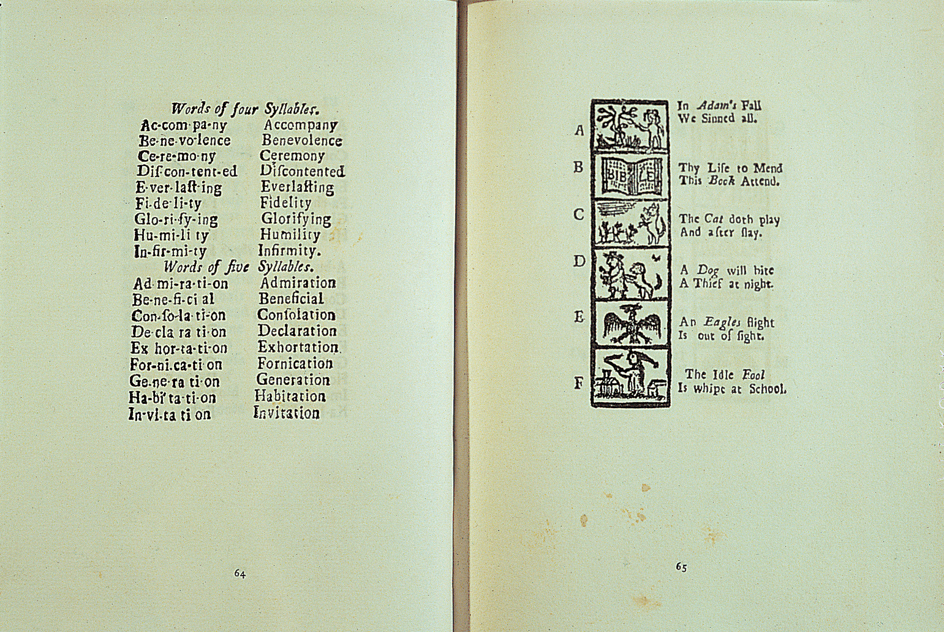 Words of four Syllables.
Ac-com-pa-ny Accompany
Be-ne-vo-lence Benevolence
Ce-re-mo-ny Ceremony
Diſ-con-tent-ed Diſcontented
E-ver-laſt-ing Everlaſting
Fi-de-li-ty Fidelity
Glo-ri-fy-ing Glorifying
Hu-mi-li-ty Humility
In-fir-mi-ty Infirmity.
Words of five Syllables.
Ad mi-ra-ti-on Admiration
Be-ne-fi-ci al Beneficial
Con-ſo-la-ti-on Conſolation
De-cla ra ti on Declaration
Ex hor-ta-ti-on Exhortation
For-ni-ca-ti on Fornication
Ge-ne-ra ti-on Generation
Ha-bi-ta-ti-on Habitation
In-vi-ta ti on Invitation
64
A
In Adam's Fall
We Sinned all.
B
BIBLE
Thy Life to Mend
This Book Attend.
C
The Cat doth play
And after ſlay.
D
A Dog will bite
A Thief at night.
E
An Eagles flight
Is out of ſight.
F
The Idle Fool
Is whipt at School.
65